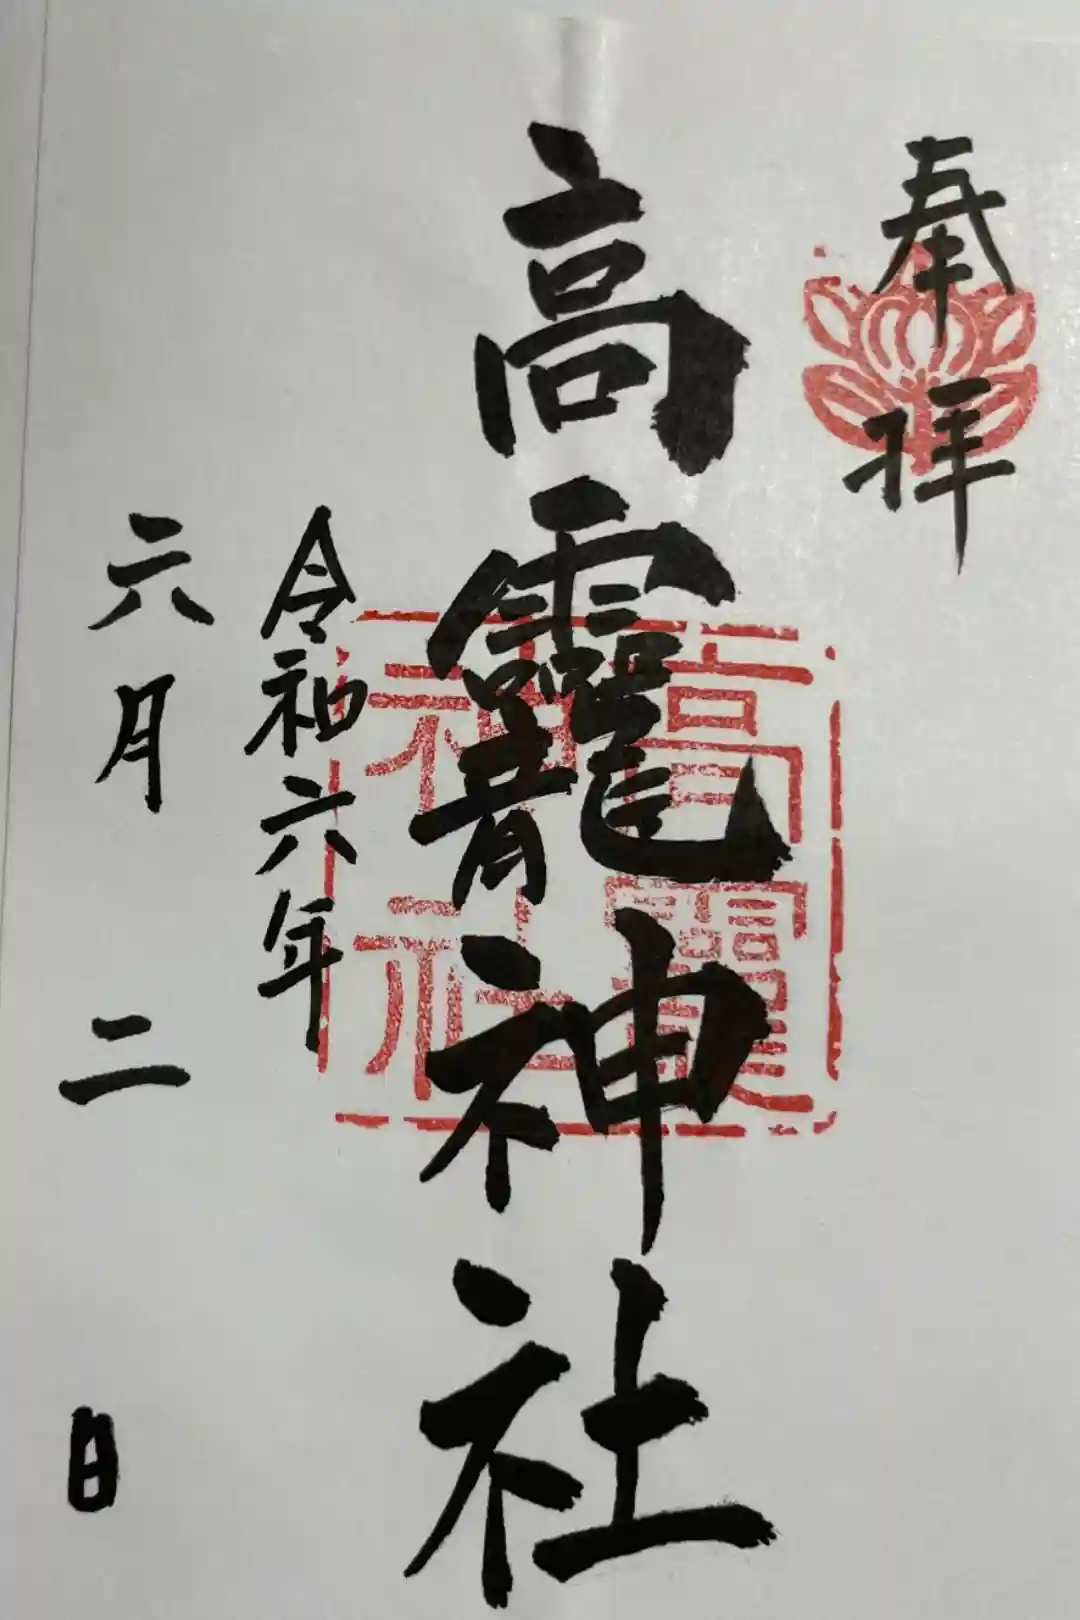 奉拝
高龗神社
令和六年
六月二日
高龗
神社